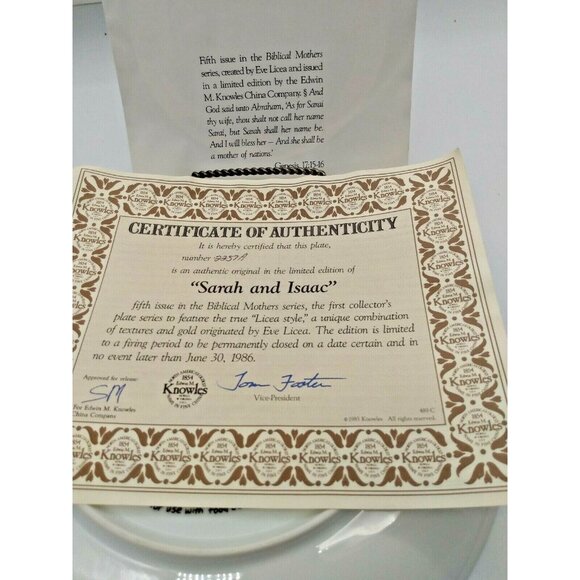 Fifth issue in the Biblical Mothers
series, created by Eve Licea and issued
in a limited edition by the Edwin
M. Knowles China Company. § And
God said unto Abraham, 'As for Sarai
thy wife, thou shalt not call her name
Sarai, but Sarah shall her name be.
And I will bless her – And she shall be
a mother of nations.'
Genesis, 17:15-16
CERTIFICATE OF AUTHENTICITY
It is hereby certified that this plate,
number
is an authentic original in the limited edition of
"Sarah and Isaac"
fifth issue in the Biblical Mothers series, the first collector's
plate series to feature the true "Licea style," a unique combination
of textures and gold originated by Eve Licea. The edition is limited
to a firing period to be permanently closed on a date certain and in
no event later than June 30, 1986.
Approved for release:
SM
For Edwin M. Knowles
China Company
1854
Edwin M.
Knowles
Tom Foster
Vice-President
©1985 Knowles. All rights reserved.
for use with food